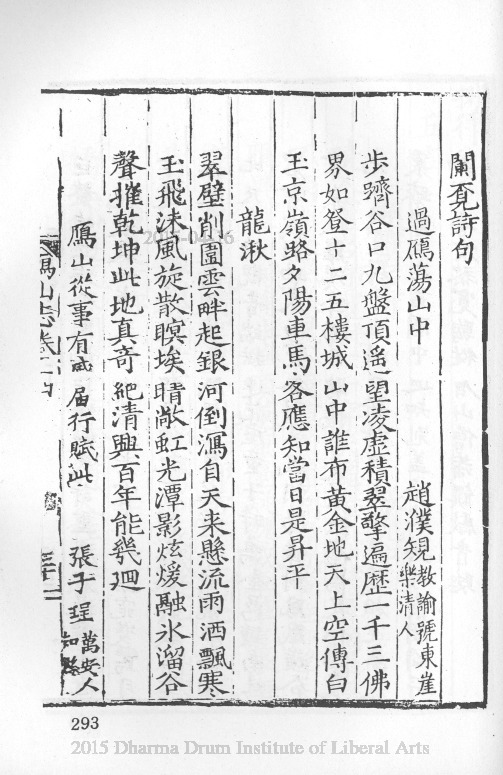 闌覓詩句
過鴈蕩山中 趙濮 知縣教諭號東崖樂清人
步躋谷口九盤頂遥望凌虛積翠擎遍歷一千三佛
界如登十二五樓城山中誰布黃金地天上空傳白
玉京嶺路夕陽車馬客應知當日是昇平
龍湫
翠壁削圍雲畔起銀河倒瀉自天来懸流雨洒飄寒
玉飛沫風旋散暝埃晴敞虹光潭影炫煖融氷溜谷
聲摧乾坤此地真奇絕清興百年能幾迴
鴈山從事有感届行賦此 張子瑆 萬安人知縣
鴈山志卷之四
三十二
293
2015 Dharma Drum Institute of Liberal Arts